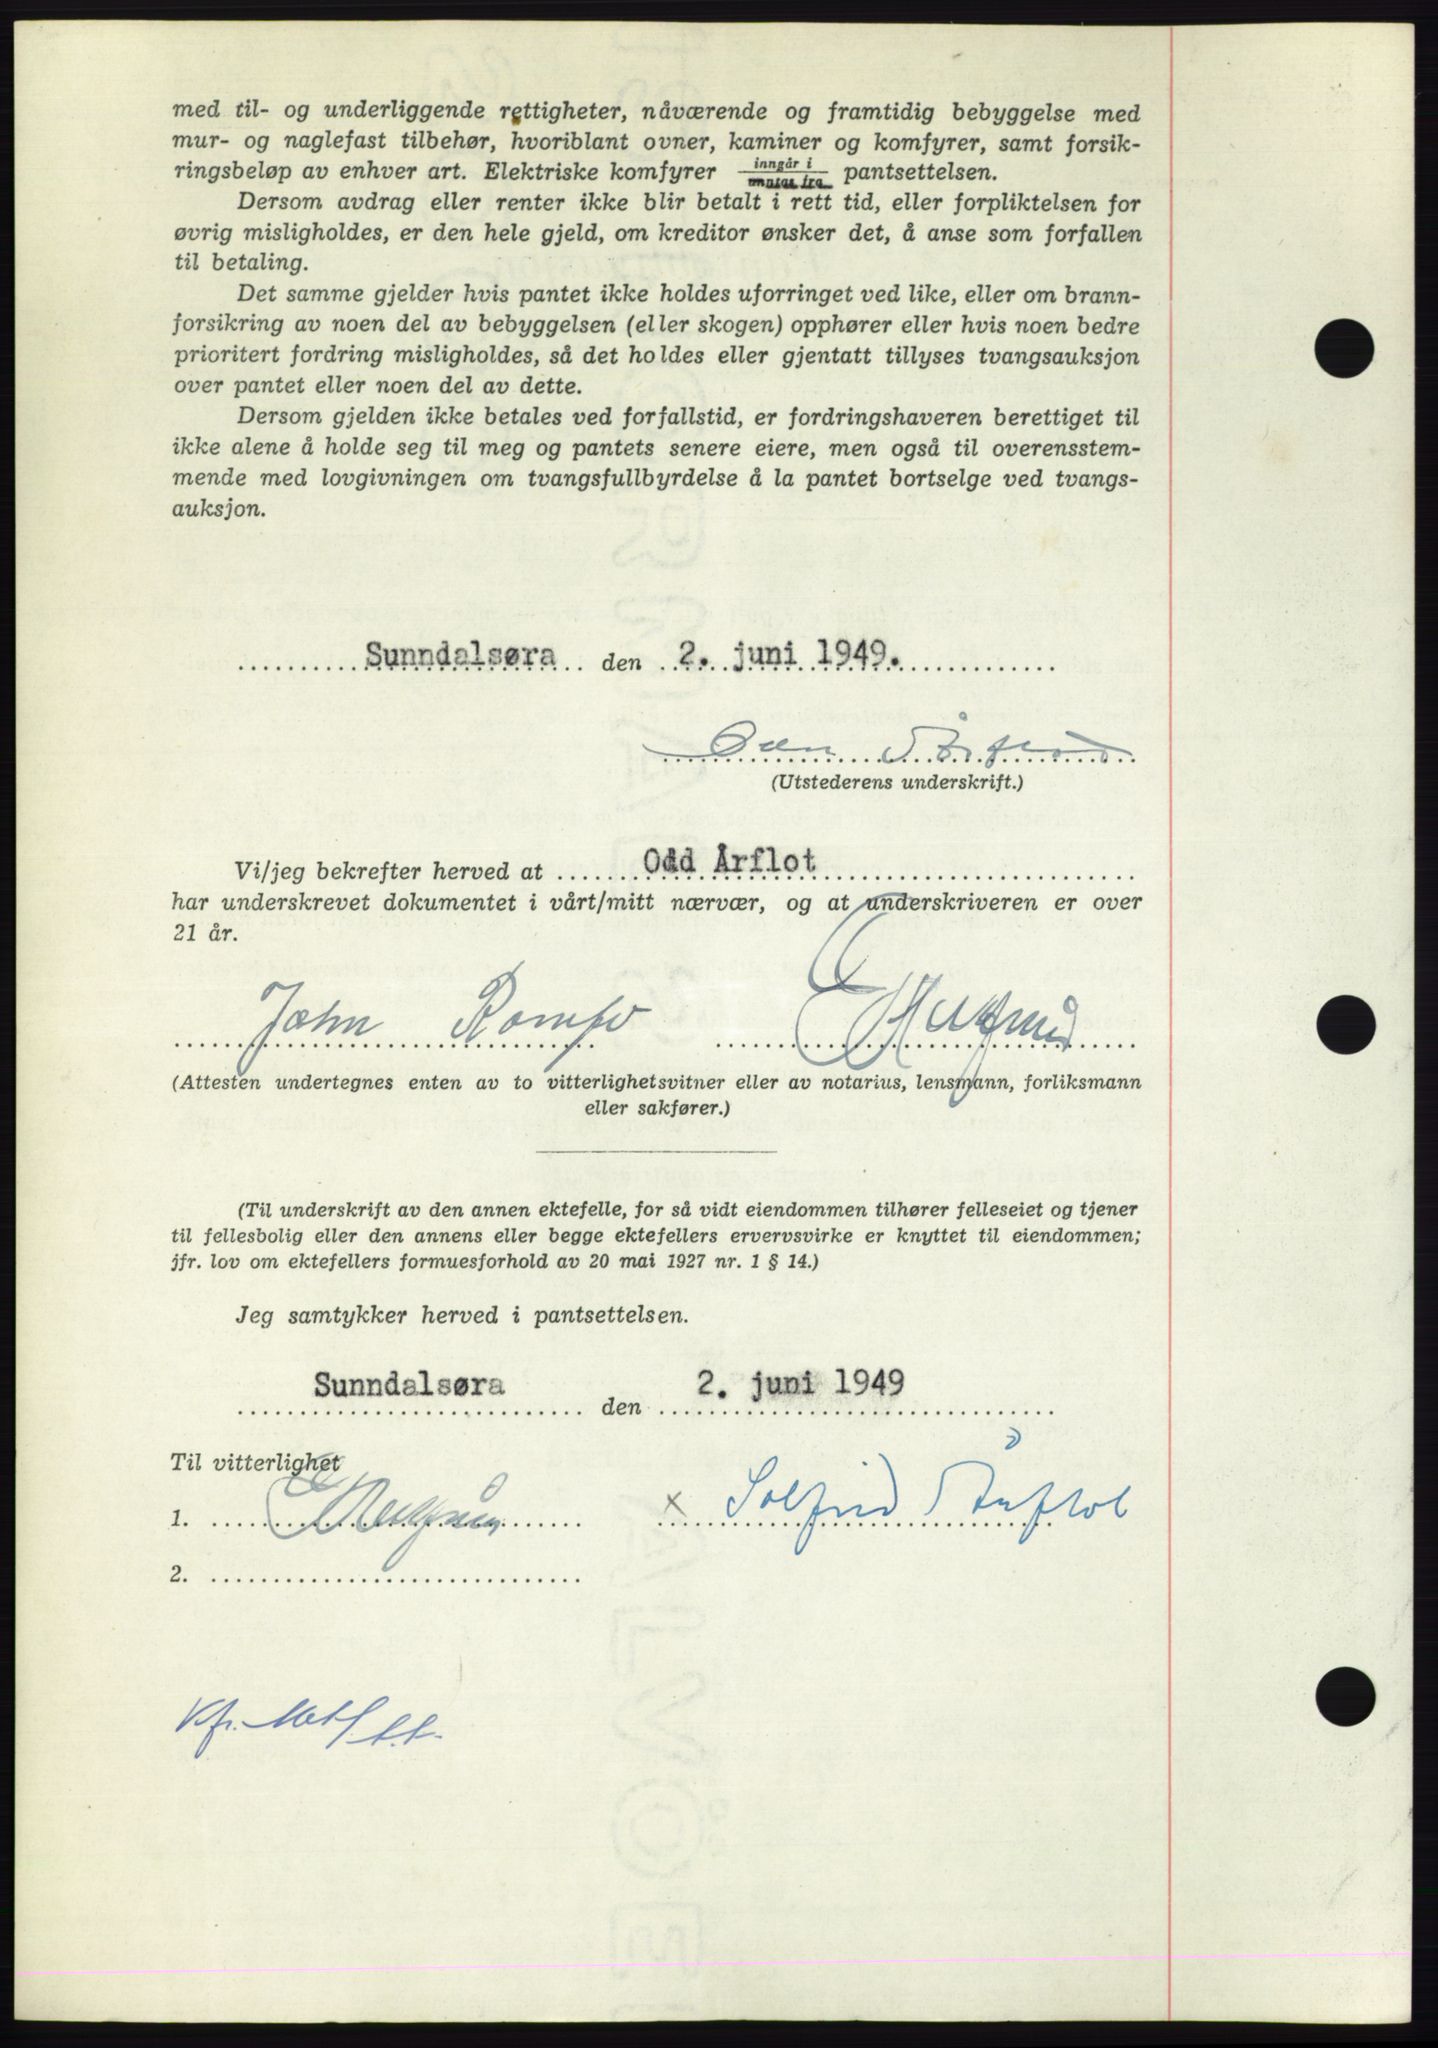 med til- og underliggende rettigheter, nåværende og framtidig bebyggelse med
mur- og naglefast tilbehør, hvoriblant ovner, kaminer og komfyrer, samt forsik-
ringsbeløp av enhver art. Elektriske komfyrer inngår i pantsettelsen.
Dersom avdrag eller renter ikke blir betalt i rett tid, eller forpliktelsen for
øvrig misligholdes, er den hele gjeld, om kreditor ønsker det, å anse som forfallen
til betaling.
Det samme gjelder hvis pantet ikke holdes uforringet ved like, eller om brann-
forsikring av noen del av bebyggelsen (eller skogen) opphører eller hvis noen bedre
prioritert fordring misligholdes, så det holdes eller gjentatt tillyses tvangsauksjon
over pantet eller noen del av dette.
Dersom gjelden ikke betales ved forfallstid, er fordringshaveren berettiget til
ikke alene å holde seg til meg og pantets senere eiere, men også til overensstem-
mende med lovgivningen om tvangsfullbyrdelse å la pantet bortselge ved tvangs-
auksjon.
Sunndalsøra den 2. juni 1949.
(Utstederens underskrift.)
Vi/jeg bekrefter herved at Odd Årflot
har underskrevet dokumentet i vårt/mitt nærvær, og at underskriveren er over
21 år.
John Romfo
(Attesten undertegnes enten av to vitterlighetsvitner eller av notarius, lensmann, forliksmann
eller sakfører.)
(Til underskrift av den annen ektefelle, for så vidt eiendommen tilhører felleseiet og tjener
til fellesbolig eller den annens eller begge ektefellers ervervsvirke er knyttet til eiendommen;
jfr. lov om ektefellers formuesforhold av 20 mai 1927 nr. 1 § 14.)
Jeg samtykker herved i pantsettelsen.
Sunndalsøra den 2. juni 1949
Til vitterlighet
1. x Solfrid Årflot
2.